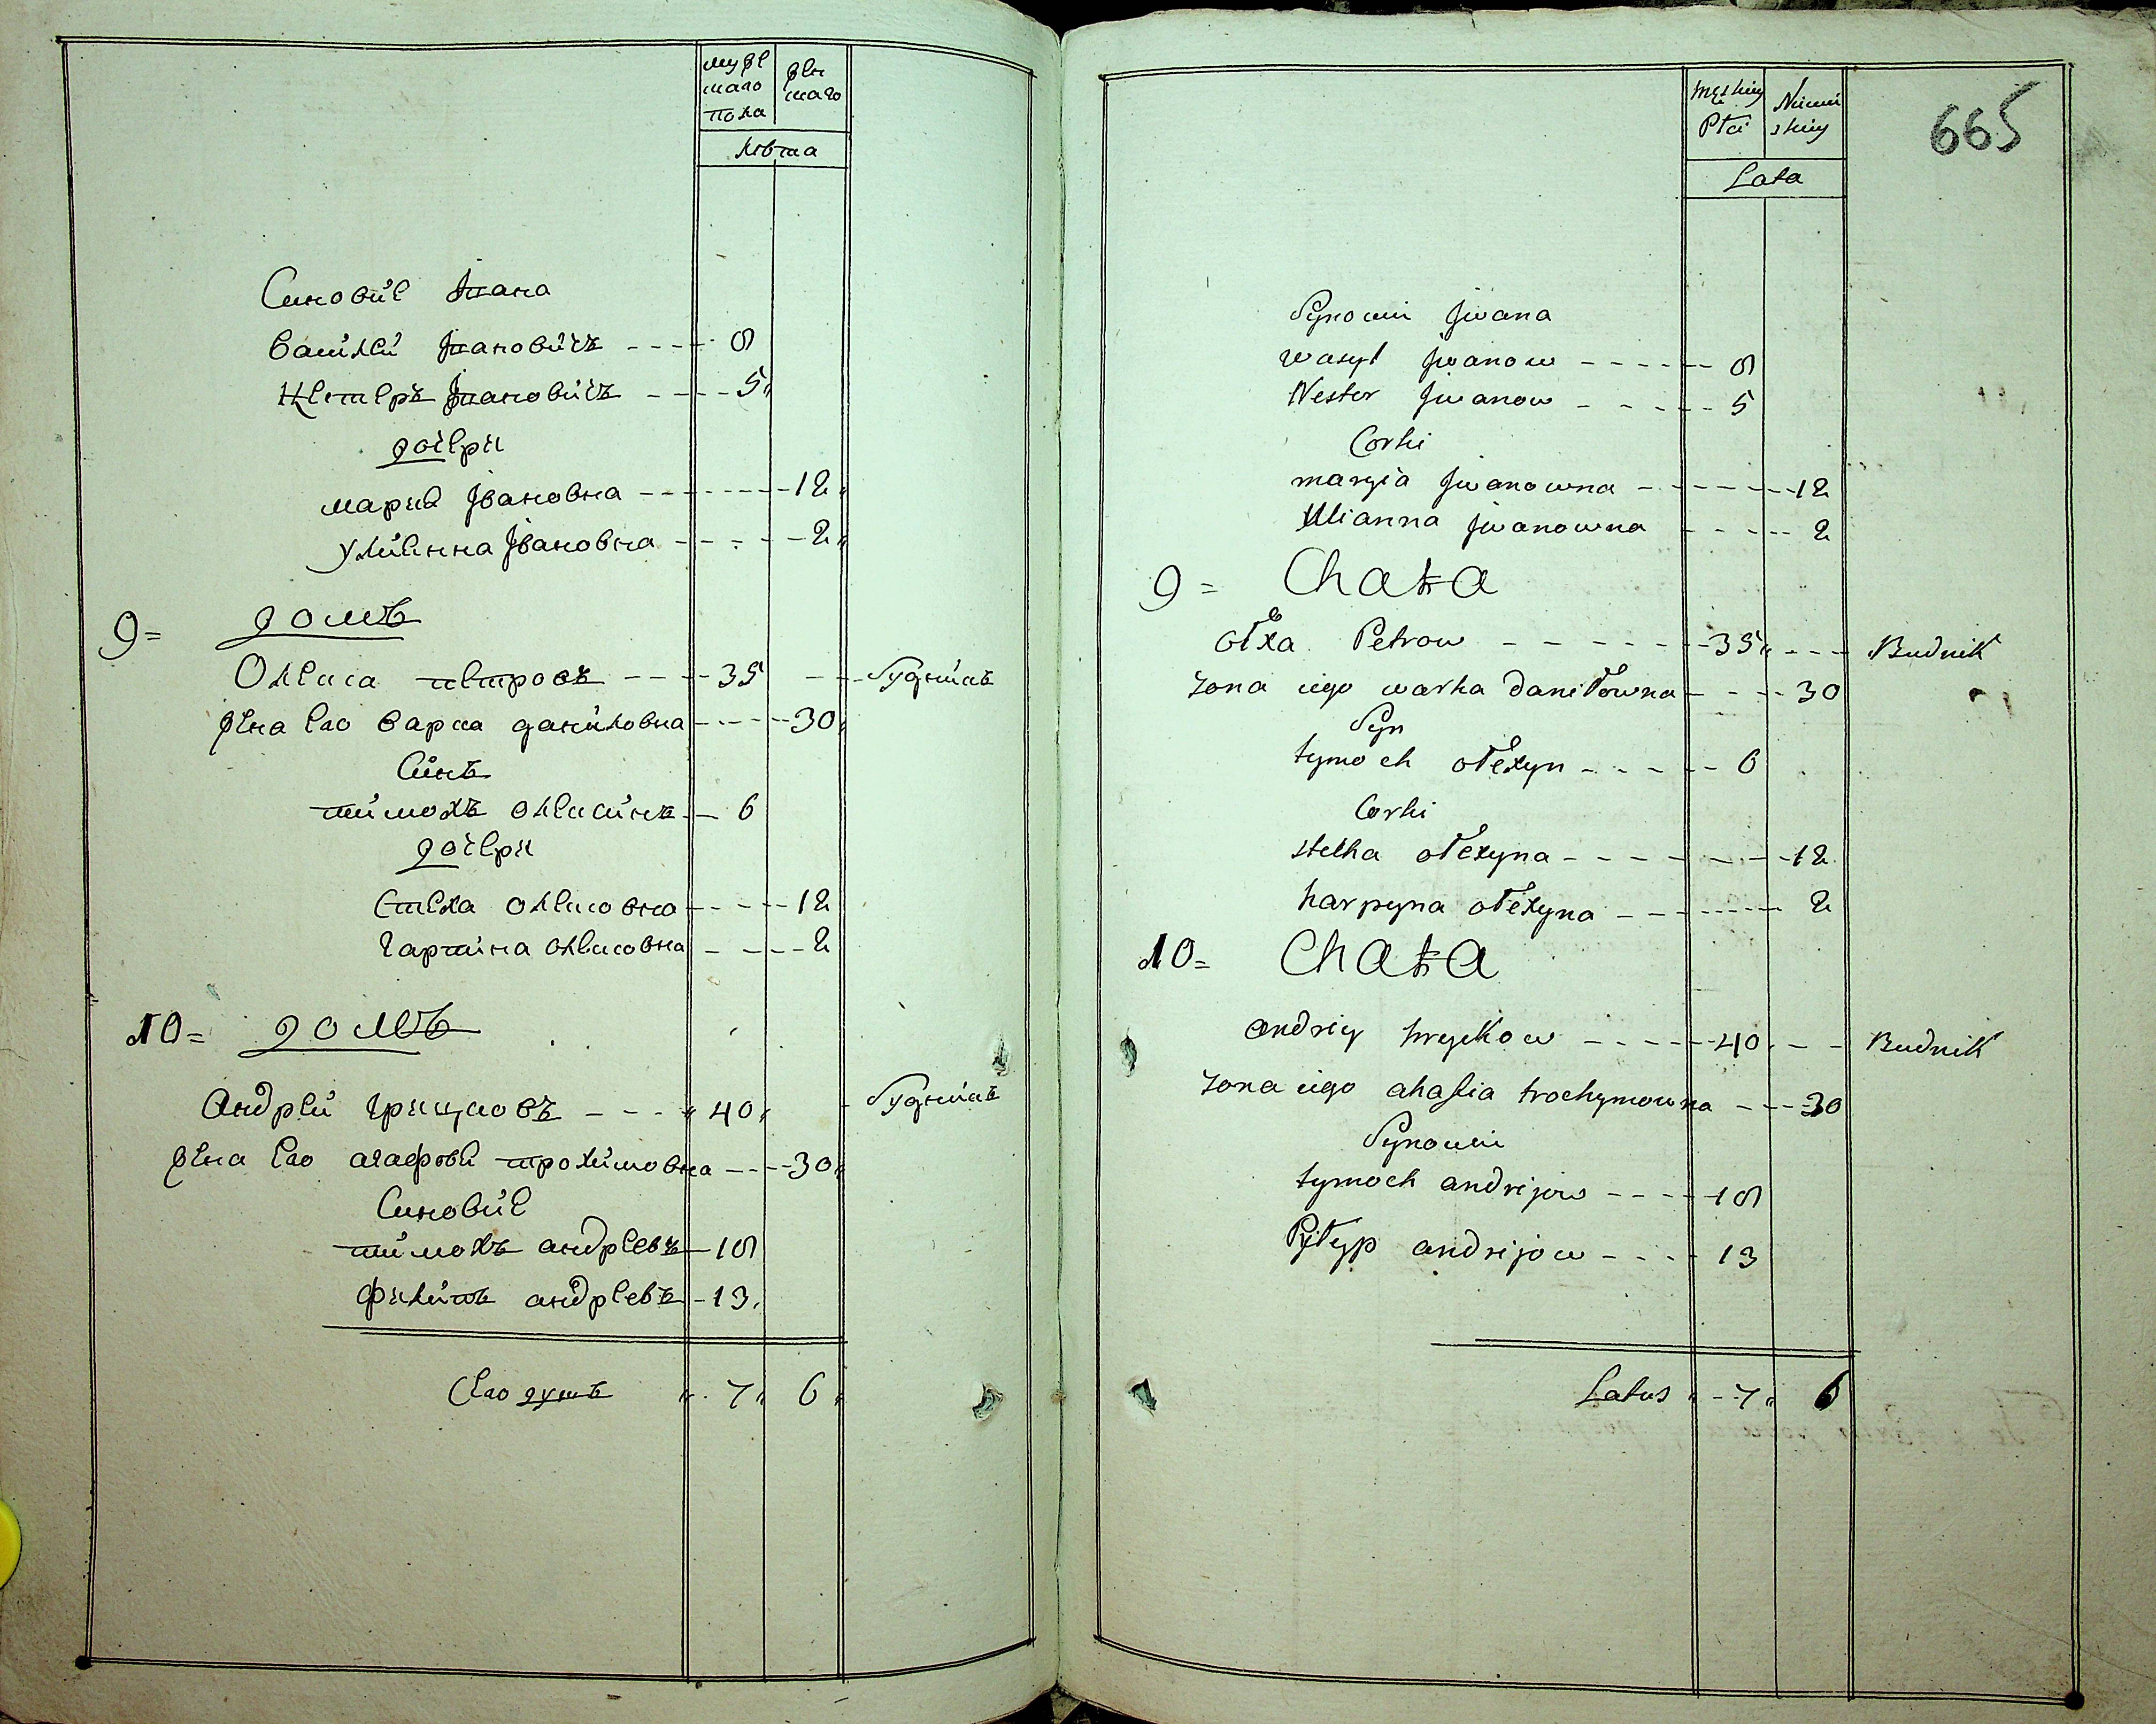 муже
скаго
пола
жен
скаго
лѣта
Синовіе Івана
Василій Івановичъ 8
Нестеръ Івановичъ 5
дочери
мария Івановна 12
Улиянна Івановна 2
9= домъ
Олекса петровъ 35 Будникъ
жена Его варка даниловна 30
Синъ
тимохъ олексинъ 6
дочери
Стеха олексовна 12
гарпина олексовна 2
10= домъ
Андрей грицковъ 40 Будникъ
жена Его агафия трохимовна 30
Синовіе
тимохъ андреевъ 18
филипъ андреевъ 13
Сего душъ 7 6
665
męskiey
Płci
Niewi
skiey
Lata
Synowie Jwana
wasyl Jwanow 8
Nester Jwanow 5
Corki
maryia Jwanowna 12
Ulianna Jwanowna 2
9= Chata
ołexa Petrow 35 Budnik
zona iego warka daniłowna 30
Syn
tymoch ołexyn 6
Corki
stecha ołexyna 12
harpyna ołexyna 2
10= Chata
andriy hryckow 40 Budnik
zona iego ahafia trochymowna 30
Synowie
tymoch andrijow 18
Pyłyp andrijow 13
Latus 7 6